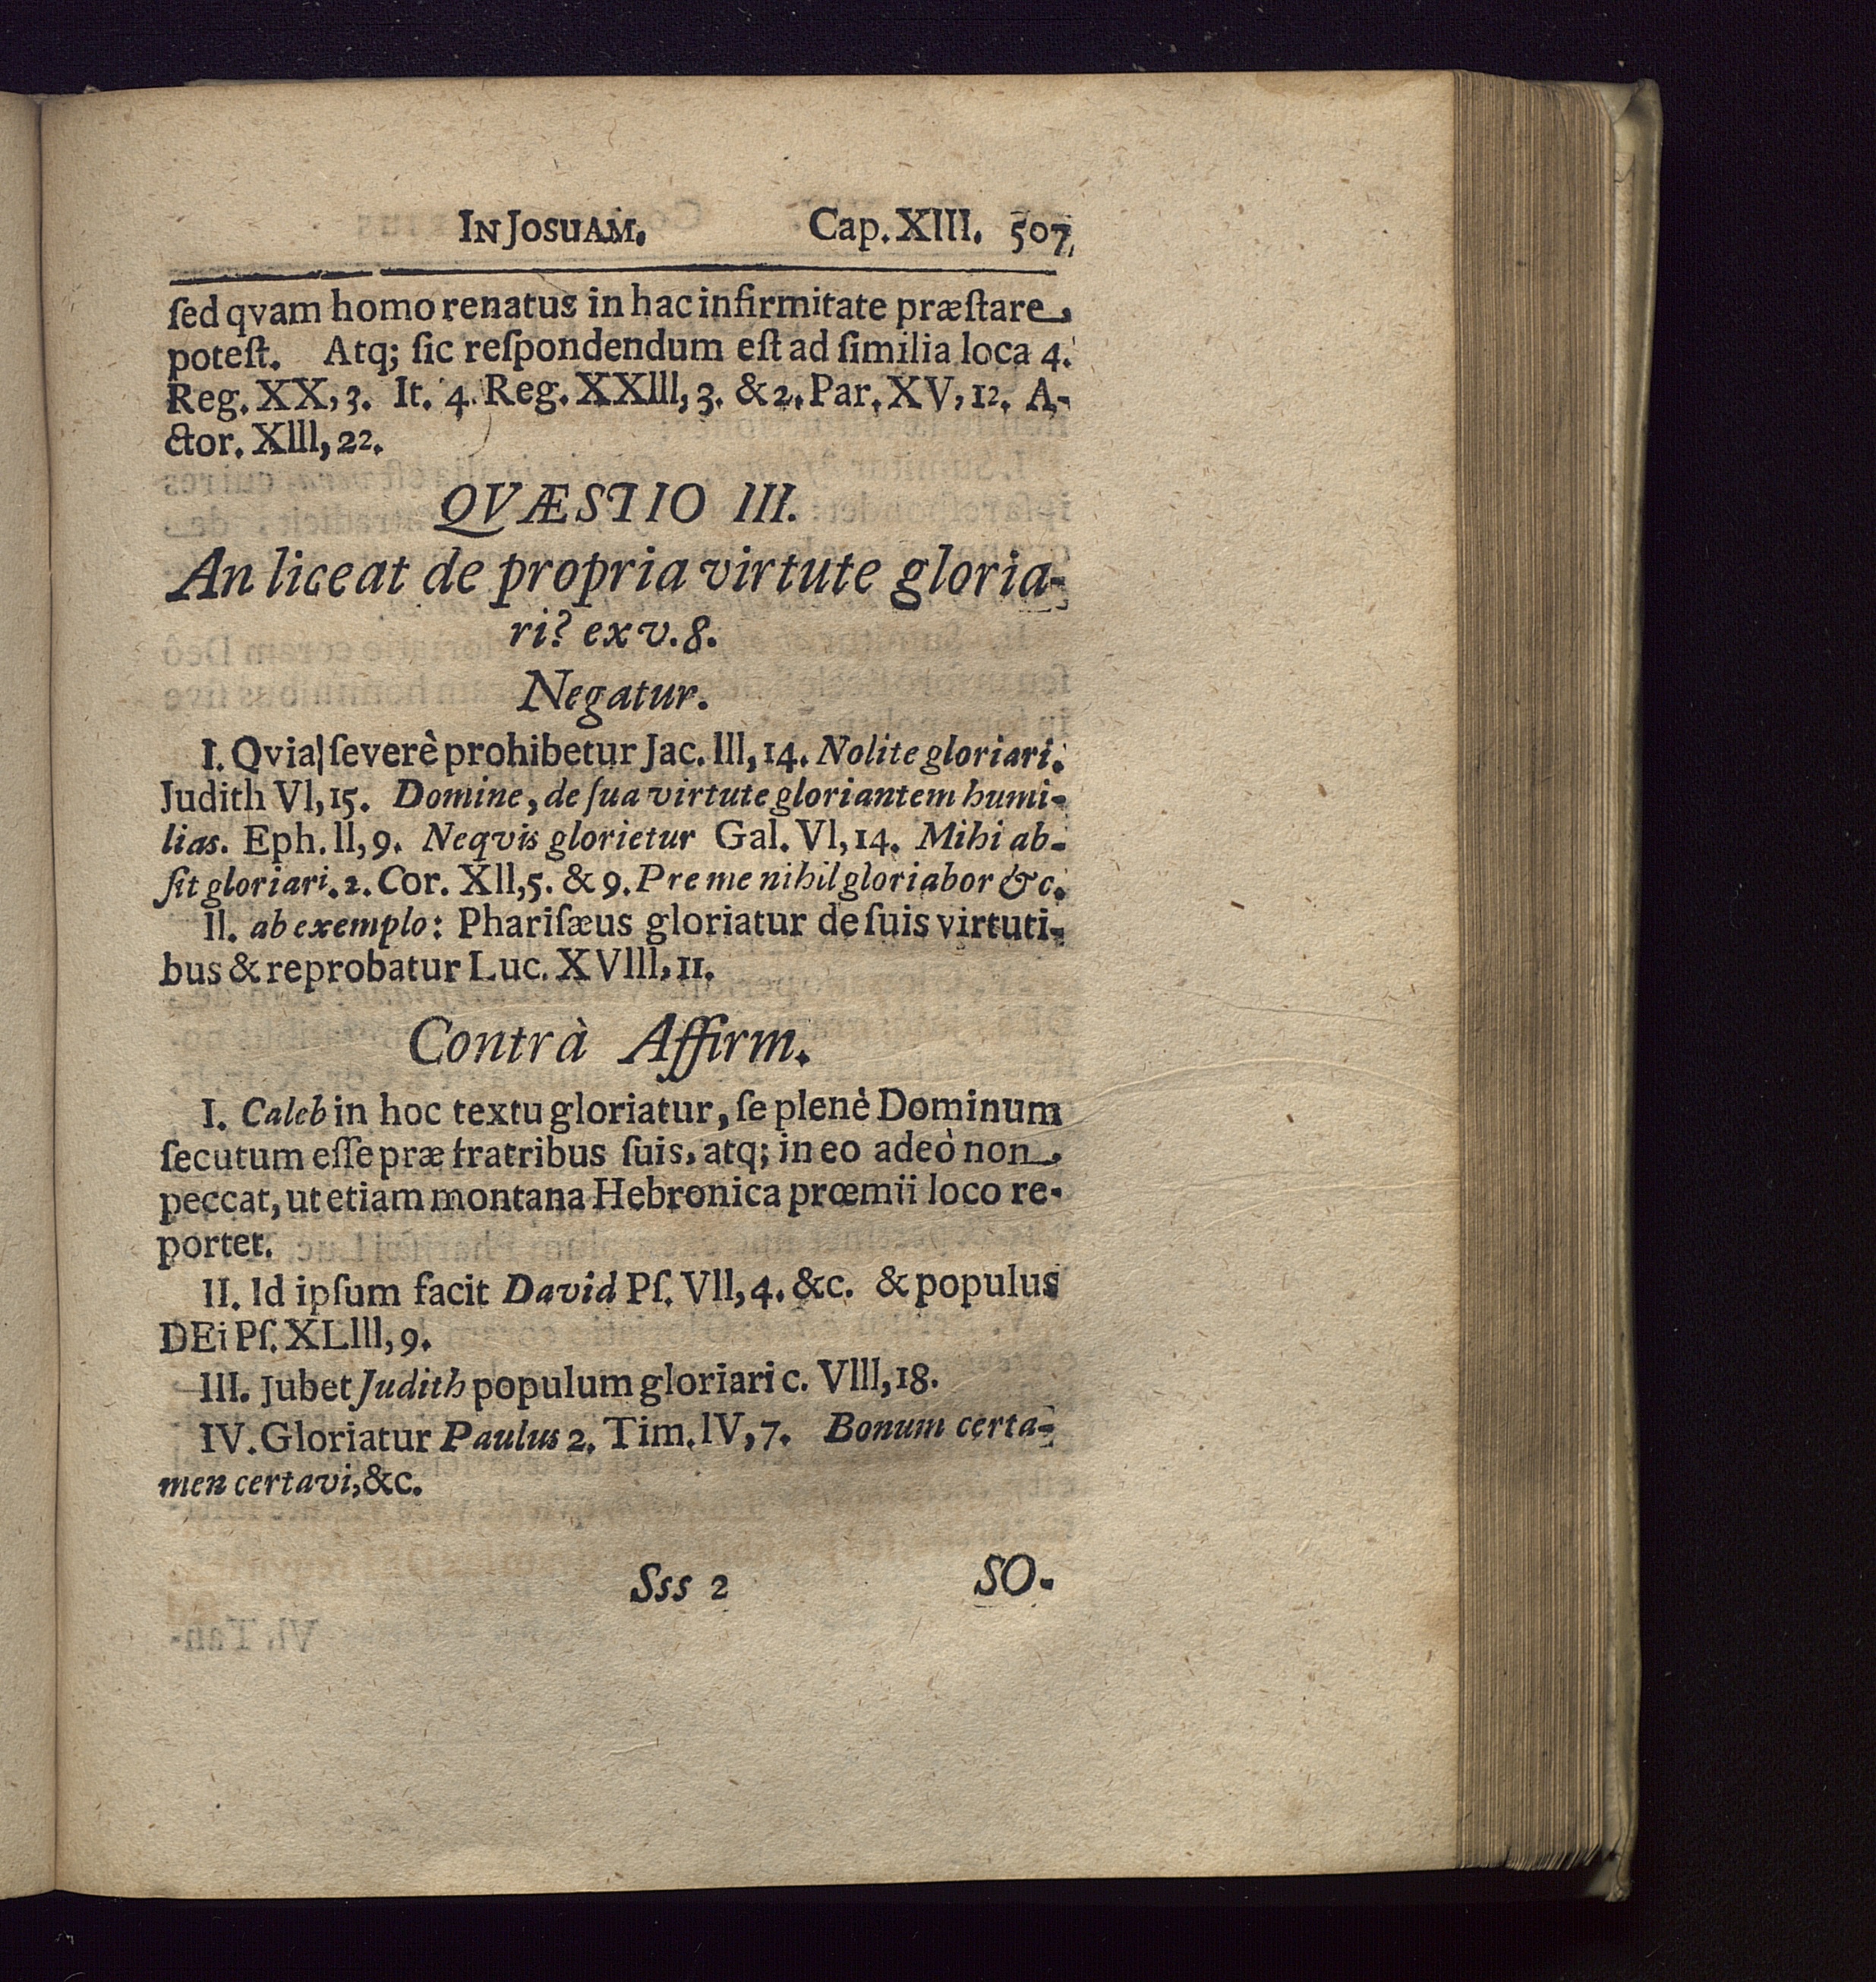 IN JOSUAM. Cap. XIII. 507
ſed qvam homo renatus in hac infirmitate præſtare
poteſt. Atq; ſic reſpondendum eſt ad ſimilia loca 4.
Reg. XX, 3. It. 4. Reg. XXIII, 3. & 2. Par. XV, 12. A-
ctor. XIII, 22.
QVÆSTIO III.
An liceat de propria virtute gloria-
ri? ex v. 8.
Negatur.
I. Qvia ſeverè prohibetur Jac. III, 14. Nolite gloriari.
Judith VI, 15. Domine, de ſua virtute gloriantem humi-
lias. Eph. II, 9. Neqvis glorietur Gal. VI, 14. Mihi ab-
ſit gloriari. 2. Cor. XII, 5. & 9. Pre me nihil gloriabor &c.
II. ab exemplo: Phariſæus gloriatur de ſuis virtuti-
bus & reprobatur Luc. XVIII, 11.
Contrà Affirm.
I. Caleb in hoc textu gloriatur, ſe plenè Dominum
ſecutum eſſe præ fratribus ſuis, atq; in eo adeò non
peccat, ut etiam montana Hebronica prœmii loco re-
portet.
II. Id ipſum facit David Pſ. VII, 4. &c. & populus
DEi Pſ. XLIII, 9.
III. Jubet Judith populum gloriari c. VIII, 18.
IV. Gloriatur Paulus 2. Tim. IV, 7. Bonum certa-
men certavi, &c.
Sss 2 SO-